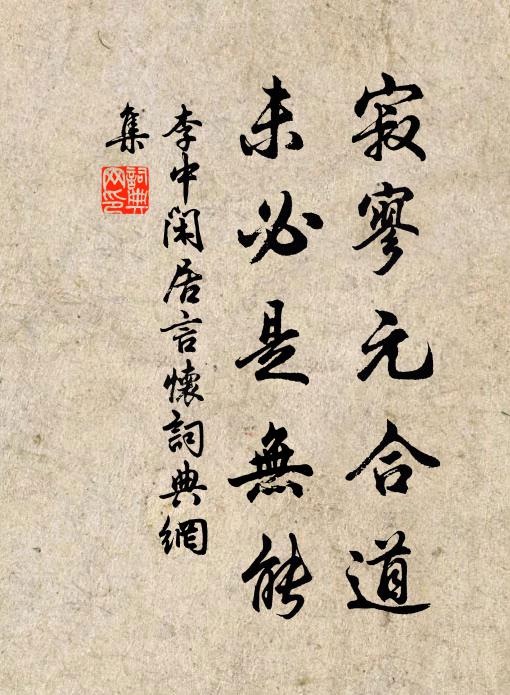 寂寥元合道
未必是無能
李中閑居言懷詞典網
集
詞典
网印